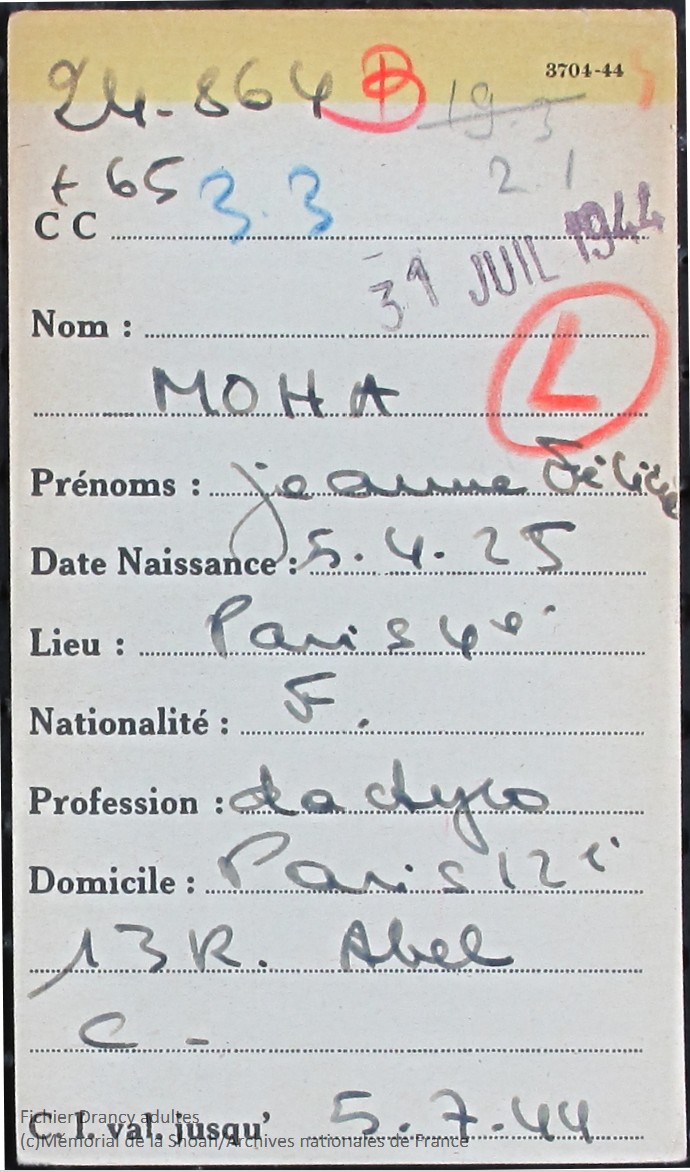 3704-44
24.864 B 19.3
+ 65 3.3 2 1
C C
31 JUIL 1944
Nom :
MOHA L
Prénoms : jeanne Félicie
Date Naissance : 5.4.25
Lieu : Paris 4e
Nationalité : F.
Profession : dactylo
Domicile : Paris 12e
13 R. Abel
C -
C. I. val. jusqu' 5.7.44
Fichier Drancy adultes
(c)Mémorial de la Shoah/Archives nationales de France